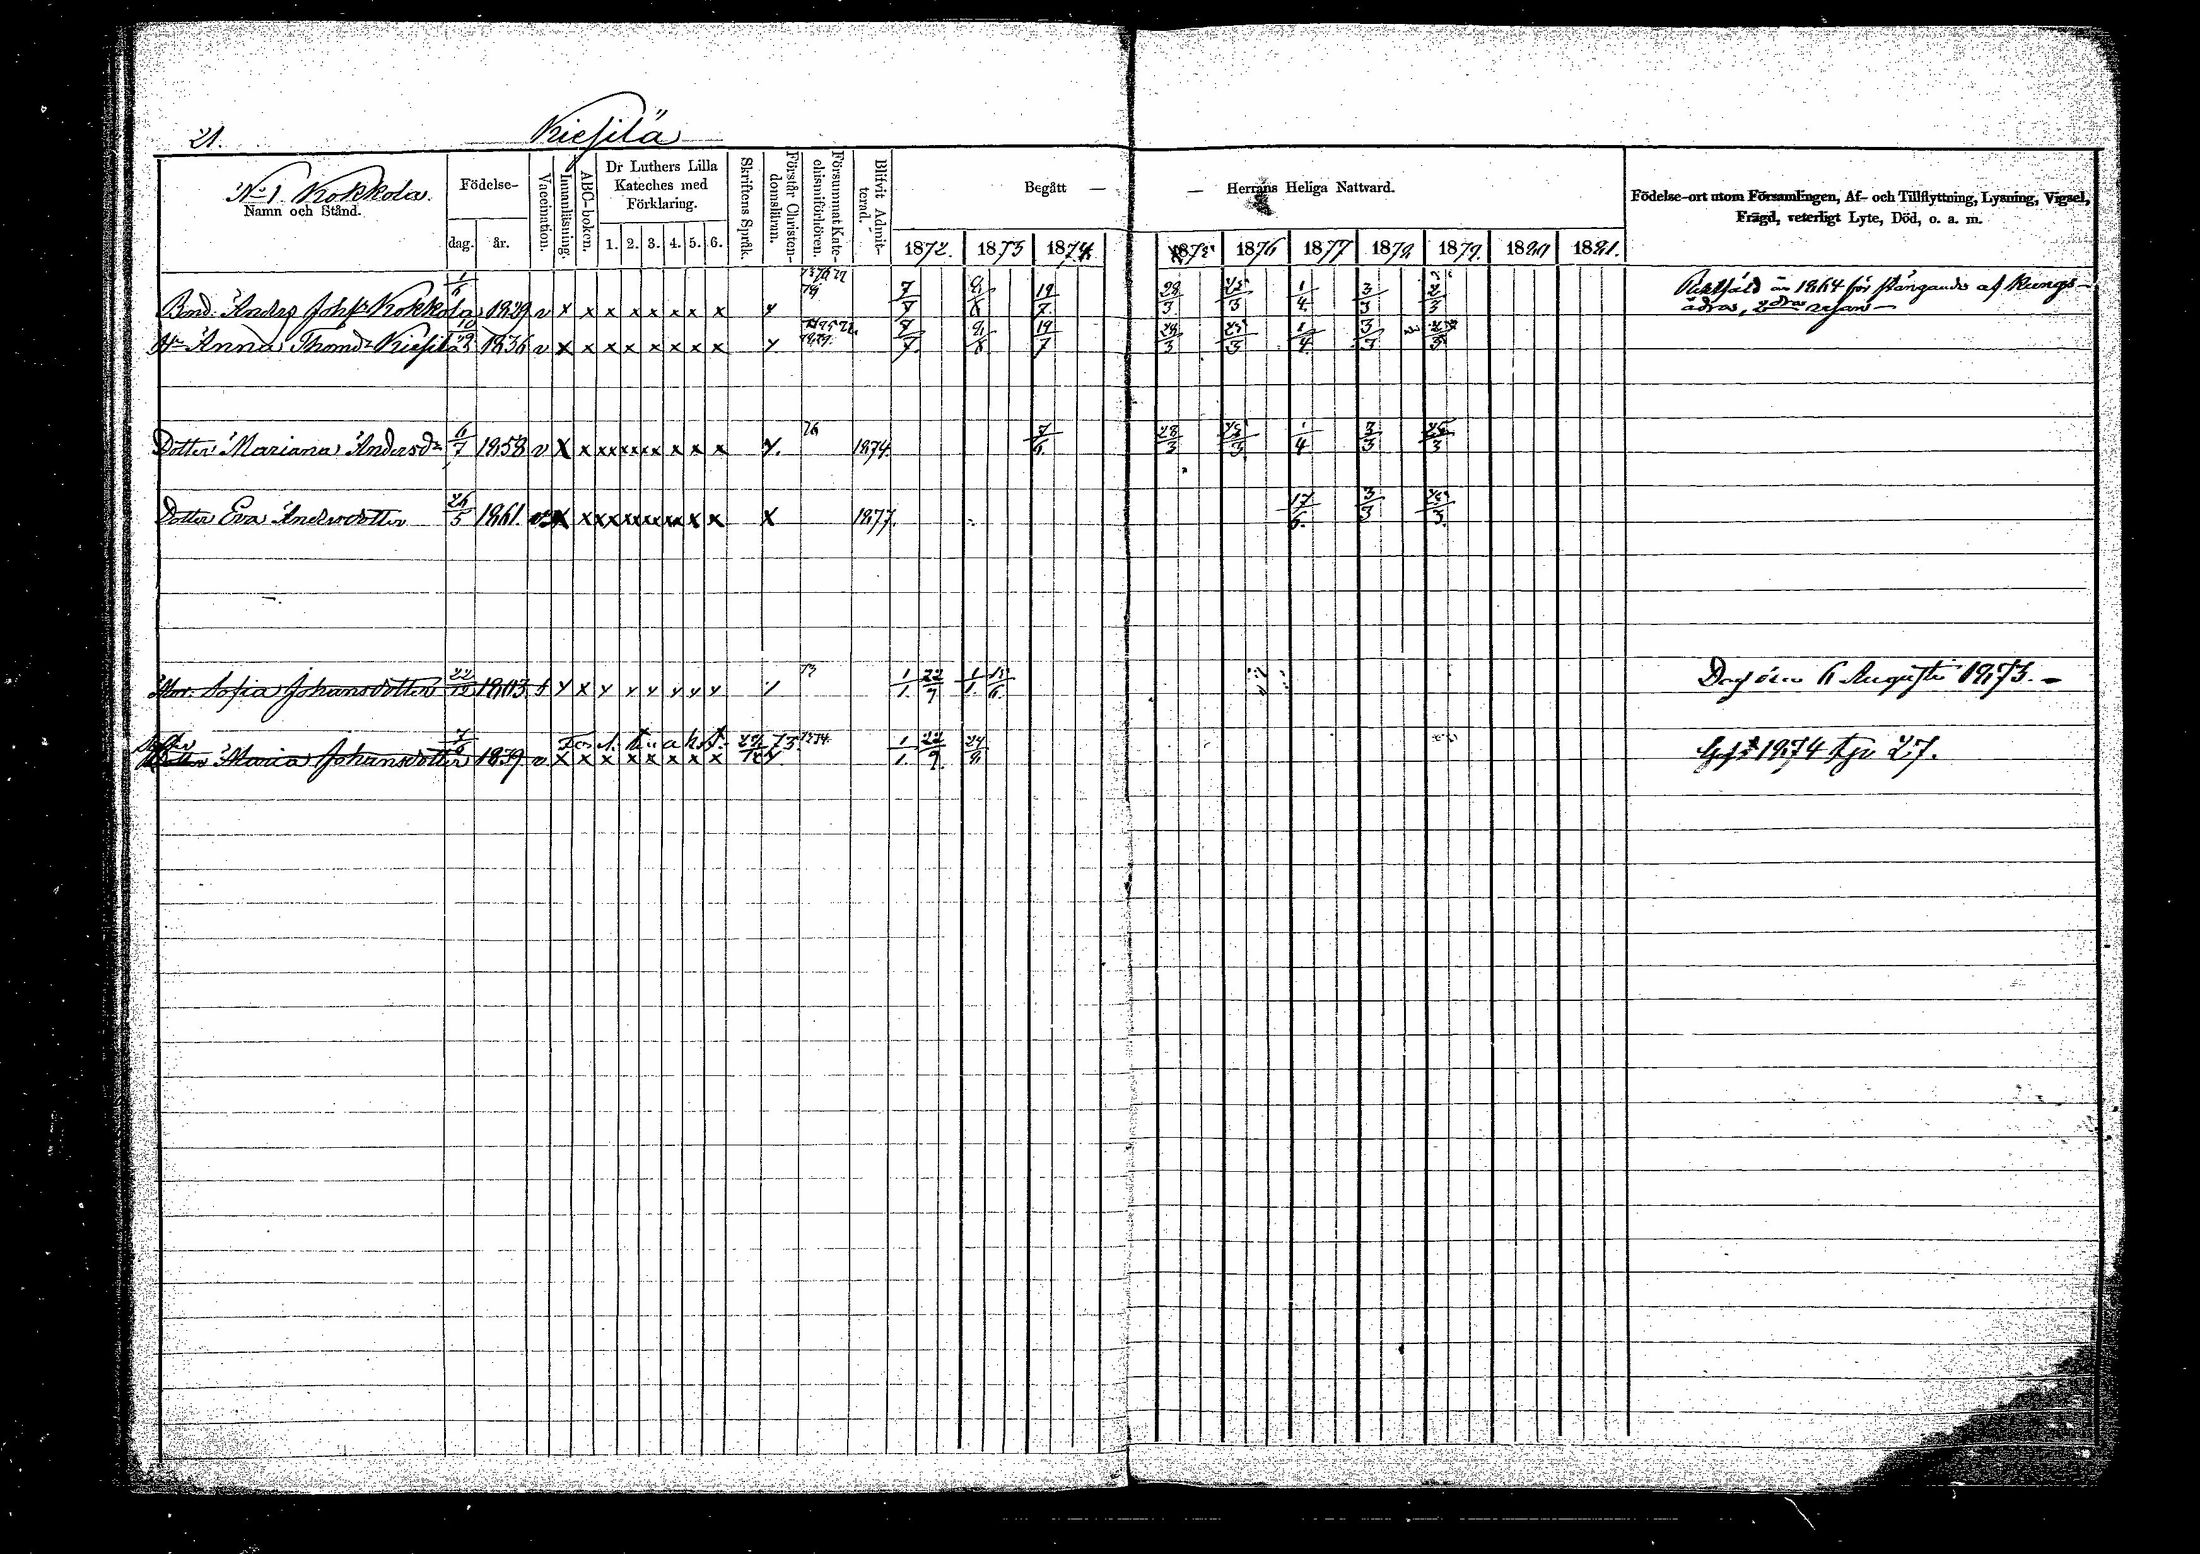 21. Kiesilä
No 1. Kokkola.
Namn och Stånd.
Födelse-
dag. år.
Vaccination.
Innanläsning.
ABC-boken.
Dr Luthers Lilla
Kateches med
Förklaring.
1. 2. 3. 4. 5. 6.
Skriftens Språk.
Förstår Christen-
domslärnn.
Försummat Kate-
chismiförhören.
Blifvit Admit-
terad.
Begått — — Herrans Heliga Nattvard.
1872. 1873 1874. 1875 1876 1877 1878 1879. 1880 1881.
Födelse-ort utom Församlingen, Af- och Tillflyttning, Lysning, Vigsel,
Frägd, veterligt Lyte, Död, o. a. m.
Bond. Anders Johs Kokkola 1/6 1829 v x x x x x x x x y 7/7 8/8 19/7. 28/3. 25/3 1/4. 3/3 2/3 1864 för stångande af Kungs-
ådra, 2dra resan —
Hu Anna Thomdr Kiesilä 1836 v x x x x x x x x y 7/7. 8/8 19/7 28/3 25/3 1/4. 3/3
Dotter Mariana Andersdr 6/7 1858 v x x xx xx xx x x x y. 76 1874. 7/6. 28/3 25/3. 1/4 3/3 25/3
Dotter Eva Andersdotter 26/5 1861. x x xx xx xx xx x x x 1877. 17/6. 3/3 25/3.
Mor. Sofia Johansdotter 22/12 1803. y x y y y y y y y 73 1/1. 22/9 1/1. 15/6. Dog den 6 Augusti 1873. —
Maria Johansdotter 7/6 1839. v x x x x x x x x 1/1. 22/9. 24/8 1874 27.